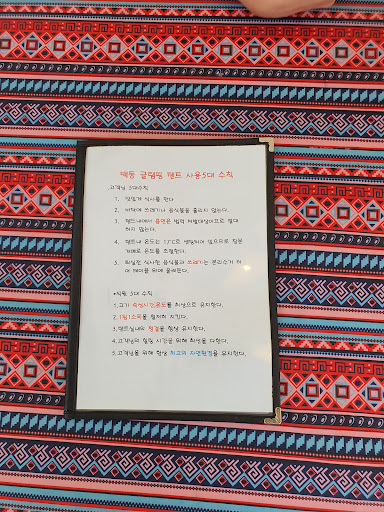 배동 글램핑 텐트 사용5대 수칙
.고객님 5대수칙
1. 맛있게 식사를 한다
2. 바닥에 쓰레기나 음식물을 흘리지 않는다.
3. 텐트내에서 흡연은 법의 처벌대상이므로 절대
하지 않는다.
4. 텐트내 온도는 17℃로 셋팅되어 있으므로 일몬
기계로 온도를 조절한다.
5. 화실전 식사한 음식물과 쓰레기는 분리수거 하
여 테이블 위에 올려둔다.
•직원 5대 수칙
1.고기 숙성시간,온도를 최상으로 유지한다.
2.1일1소독을 철저히 지킨다.
3.텐트실내의 청결을 항상 유지한다.
4.고객님의 힐링 시간을 위해 최선을 다한다.
5.고객님을 위해 항상 최고의 자연환경을 유지한다.